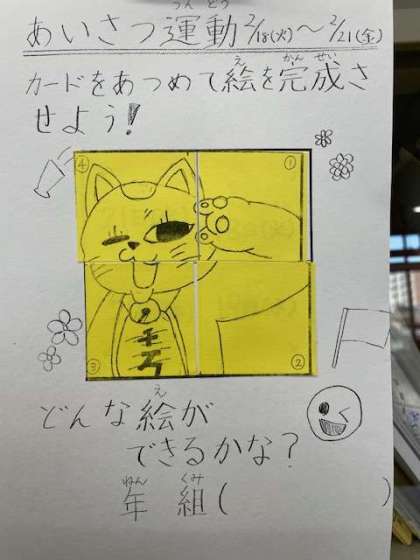 あいさつ運動2/18(火)～2/21(金)
うんどう
カードをあつめて絵を完成さ
え
かんせい
せよう!
④
①
③
②
どんな絵が
え
できるかな?
年 組( )
ねん くみ